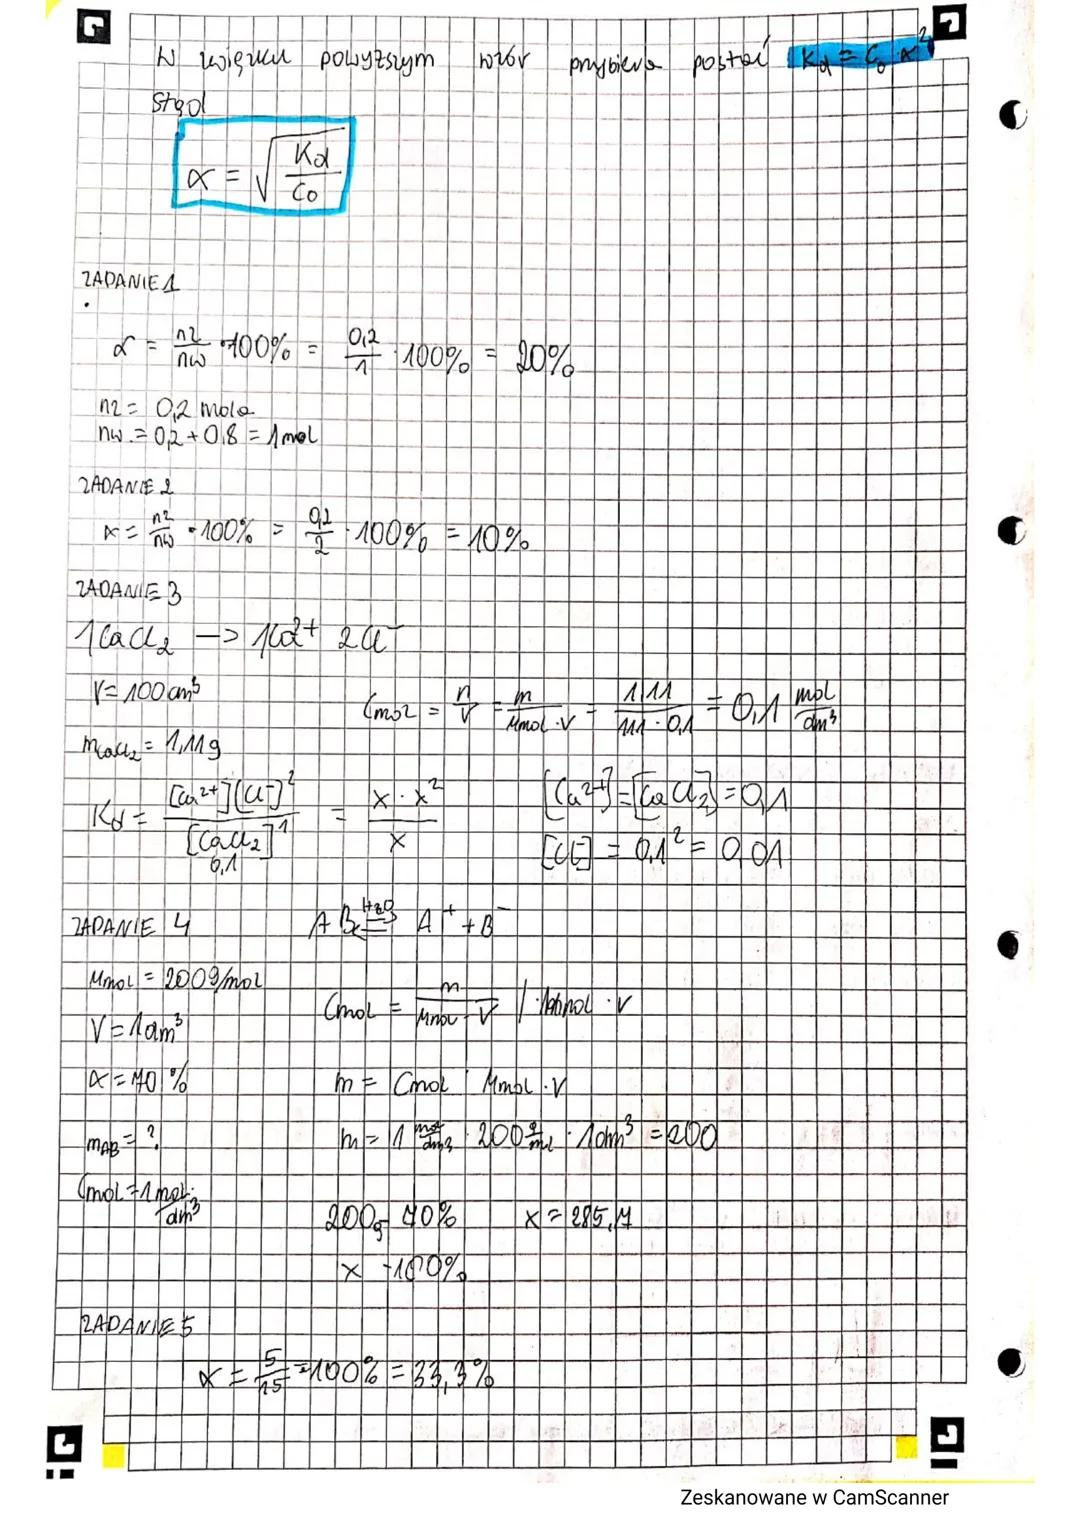 W związku powyższym wzór przybiera postać Kd = C₀ · α²
stąd
α = √(Kd/C₀)
ZADANIE 1
α = nz/nw · 100% = 0,2/1 · 100% = 20%
nz = 0,2 mola
nw. = 0,2 + 0,8 = 1 mol
ZADANIE 2
α = nz/nw · 100% = 0,2/2 · 100% = 10%
ZADANIE 3
1CaCl₂ → 1Ca²⁺ 2Cl⁻
V = 100 cm³
Cmol = n/V = m/Mmol · V = 1,11/111 · 0,1 = 0,1 mol/dm³
mCaCl₂ = 1,11g
Kd = [Ca²⁺][Cl⁻]²/[CaCl₂]¹ = x · x²/x
0,1
[Ca²⁺] = [CaCl₂] = 0,1
[Cl⁻] = 0,1² = 0,01
ZADANIE 4 AB ⇌ H₂O A⁺ + B⁻
Mmol = 200g/mol
Cmol = m/Mmol · V / · Mmol · V
V = 1dm³
α = 70%
m = Cmol · Mmol · V
mAB = ?
m = 1 mol/dm³ · 200 g/mol · 1dm³ = 200
Cmol = 1 mol/dm³
200g – 70% x = 285,7
x – 100%
ZADANIE 5
α = 5/15 = 100% = 33,3%
Zeskanowane w CamScanner